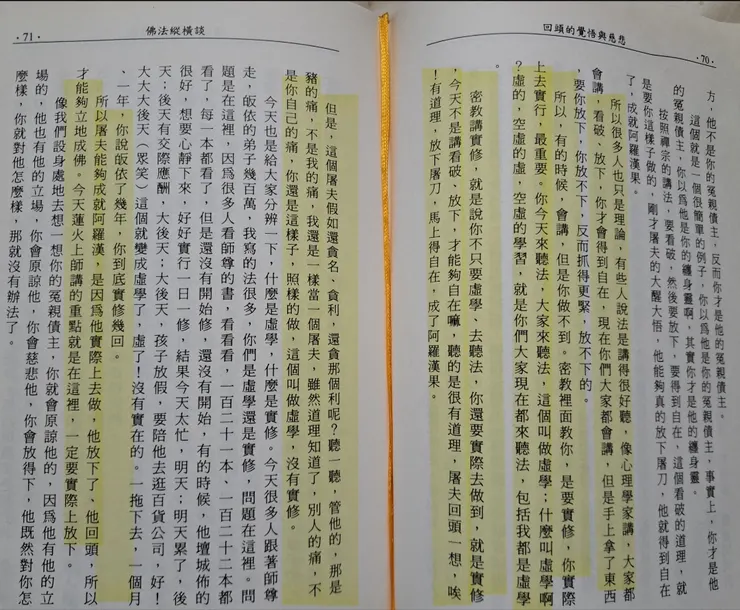 回頭的覺悟與慈悲
·70·
方，他不是你的冤親債主，反而你才是他的冤親債主。
這個就是一個很簡單的例子，你以為他是你的冤親債主，事實上，你才是他
的冤親債主，你以為他是你的纏身靈啊，其實你才是他的纏身靈。
按照禪宗的講法，要看破，然後要放下，要得到自在，這個看破的道理，就
是要你這樣子做的，剛才屠夫的大醒大悟，他能夠真的放下屠刀，他就得到自在
了，成就阿羅漢果。
所以很多人也只是理論，有些人說法是講得很好聽，像心理學家講，大家都
會講，看破、放下，你才會得到自在，現在你們大家都會講，但是手上拿了東西
，要你放下，你放不下，反而抓得更緊，放不下的。
所以，有的時候，會講，但是你做不到。密教裡面教你，是要實修，你實際
上去實行，最重要。你今天來聽法，大家來聽法，這個叫做虛學；什麼叫虛學啊
？虛的，空虛的學習，就是你們大家現在都來聽法，包括我都是虛學
密教講實修，就是說你不只要虛學、去聽法，你還要實際去做到，就是實修
，今天不是講看破、放下，才能夠自在嘛，聽的是很有道理，屠夫回頭一想，唉
！有道理，放下屠刀，馬上得自在，成了阿羅漢果。
佛法縱橫談
·71·
但是，這個屠夫假如還貪名、貪利，還貪那個利呢？聽一聽，管他的，那是
豬的痛，不是我的痛，我還是一樣當一個屠夫，雖然道理知道了，別人的痛，不
是你自己的痛，你還是這樣子，照樣的做，這個叫做虛學，沒有實修。
今天也是給大家分辨一下，什麼是虛學，什麼是實修。今天很多人跟著師尊
走，皈依的弟子幾百萬，我寫的法很多，你們是虛學還是實修，問題在這裡。問
題是在這裡，因為很多人看師尊的書，看看看，一百二十一本、一百二十二本都
看了，每一本都看了，但是還沒有開始修，還沒有開始，有的時候，他壇城佈的
很好，想要心靜下來，好好實行一日一修，結果今天太忙，明天；明天累了，後
天；後天有交際應酬，大後天；大後天，孩子放假，要陪他去逛百貨公司，好！
大大大後天（眾笑）這個就變成虛學了，虛了！沒有實在的。一拖下去，一個月
、一年，你說皈依了幾年，你到底實修幾回。
所以屠夫能夠成就阿羅漢，是因為他實際上去做，他放下了、他回頭，所以
才能夠立地成佛。今天蓮火上師講的重點就是在這裡，一定要實際上放下。
像我們設身處地去想一想你的冤親債主，你就會原諒他的，因為他有他的立
場的，他也有他的立場，你會原諒他，你會慈悲他，你會放得下，他既然對你怎
麼樣，你就對他怎麼樣，那就沒有辦法了。